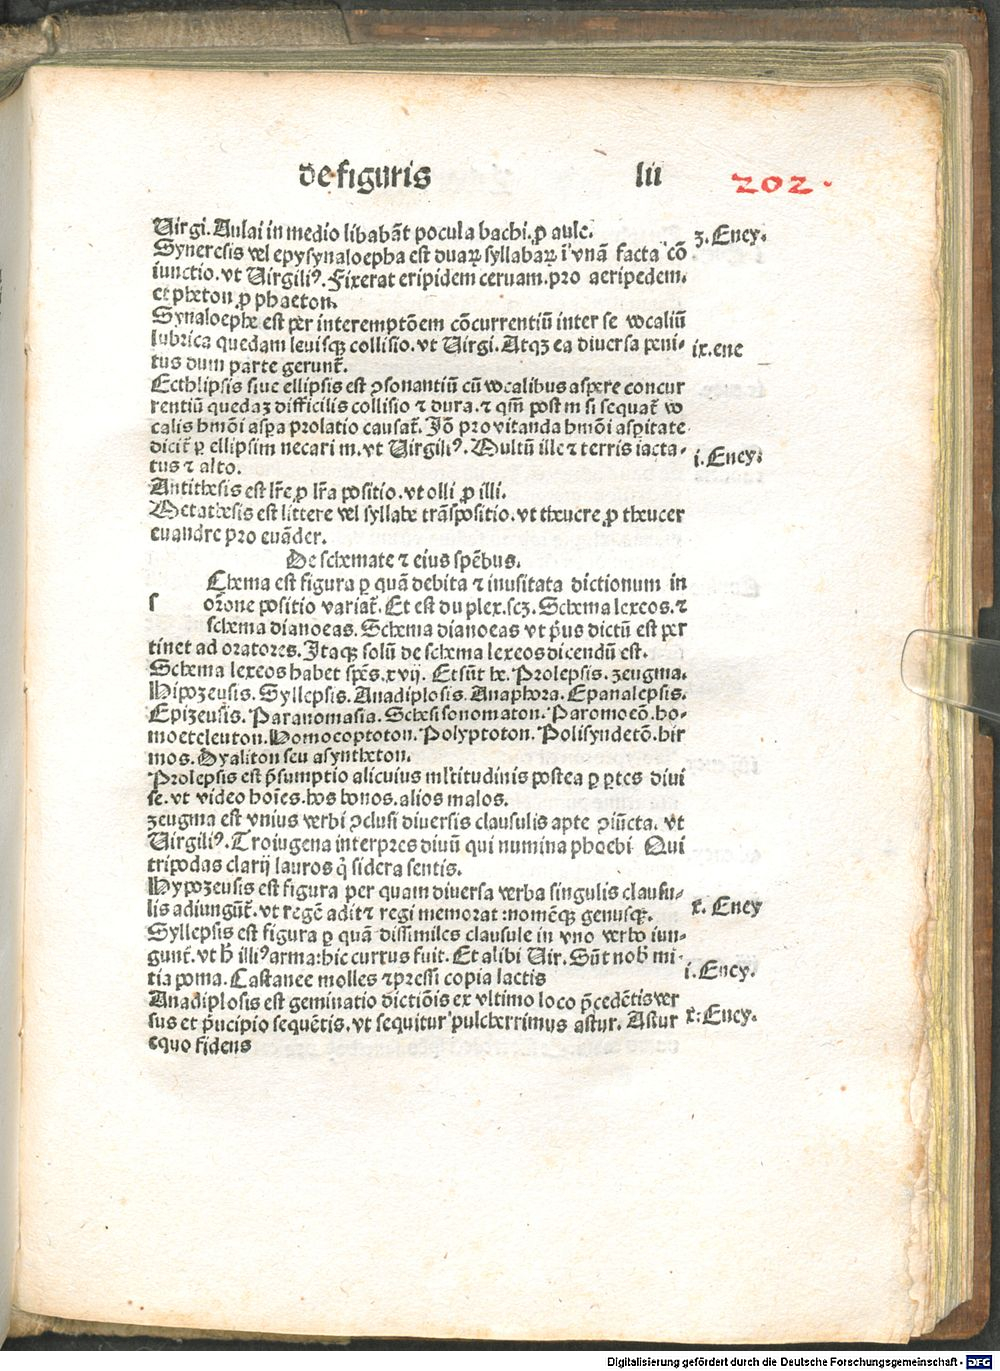 de figuris lii 202.
Uirgi. Aulai in medio libabāt pocula bachi. ꝓ aule. 3. Eney.
Syneresis vel epysynaloepha est duaꝝ syllabaꝝ ī vnā facta cō
iunctio. vt Uirgiliꝰ. Fixerat eripidem ceruam. pro aeripedem.
et pheton ꝓ phaeton.
Synaloephe est per interemptōem cōcurrentiū inter se vocaliū
lubrica quedam leuisqꝫ collisio. vt Uirgi. Atqꝫ ea diuersa peni- ix. ene
tus dum parte gerunt̄.
Ecthlipsis siue ellipsis est ꝯsonantiū cū vocalibus aspere concur
rentiū quedaꝫ difficilis collisio ⁊ dura. ⁊ qm̄ post m si sequat̄ vo
calis hmōi aspa prolatio causat̄. Jō pro vitanda hmōi asp̄itate
dicit̄ ꝑ ellipsim necari m. vt Uirgiliꝰ. Multū ille ⁊ terris iacta- i. Eney.
tus ⁊ alto.
Antithesis est lr̄e ꝓ lr̄a positio. vt olli ꝓ illi.
Metathesis est littere vel syllabe trāspositio. vt theucre ꝓ theucer
euandre pro euāder.
De schemate ⁊ eius spēbus.
Chema est figura ꝑ quā debita ⁊ inusitata dictionum in
s or̄one positio variat̄. Et est duplex. scꝫ. Schema lexeos. ⁊
schema dianoeas. Schema dianoeas vt p̄us dictū est per
tinet ad oratores. Itaqꝫ solū de schema lexeos dicendū est.
Schema lexeos habet spēs. xvij. Et sūt he. Prolepsis. zeugma.
Hipozeusis. Syllepsis. Anadiplosis. Anaphora. Epanalepsis.
Epizeusis. Paranomasia. Schesisonomaton. Paromoeō. ho-
moeteleuton. Homoeoptoton. Polyptoton. Polisyndetō. hir
mos. Dyaliton seu asyntheton.
Prolepsis est p̄sumptio alicuius ml̄titudinis postea ꝑ ꝑtes diui
se. vt video hoīes. hos bonos. alios malos.
zeugma est vnius verbi ꝯclusi diuersis clausulis apte ꝯiūcta. vt
Uirgiliꝰ. Troiugena interpres diuū qui numina phoebi Qui
tripodas clarij lauros q̇ sidera sentis.
Hypozeusis est figura per quam diuersa verba singulis clausu-
lis adiungūt̄. vt regē adit ⁊ regi memorat: nomēqꝫ genusqꝫ. x. Eney
Syllepsis est figura ꝑ quā dissimiles clausule in vno verbo iun-
gunt̄. vt h̄ illiꝰ arma: hic currus fuit. Et alibi Uir. Sūt nob̄ mi- i. Eney.
tia poma. Castanee molles ⁊ pressi copia lactis
Anadiplosis est geminatio dictiōis ex vltimo loco p̄cedētis ver
sus et p̄ncipio sequētis. vt sequitur pulcherrimus astur. Astur x: Eney.
equo fidens
Digitalisierung gefördert durch die Deutsche Forschungsgemeinschaft - DFG